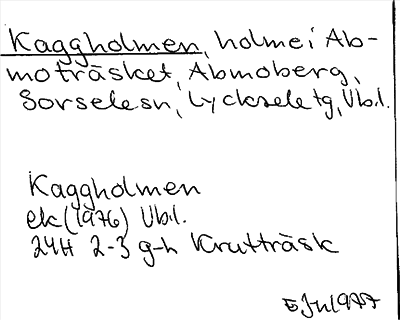 Kaggholmen, holme i Ab-
moträsket, Abmoberg,
Sorselesn, Lycksele tg, Vb.l.
Kaggholmen
ek (1976) Vb.l.
24H 2-3 g-h Krutträsk
1977